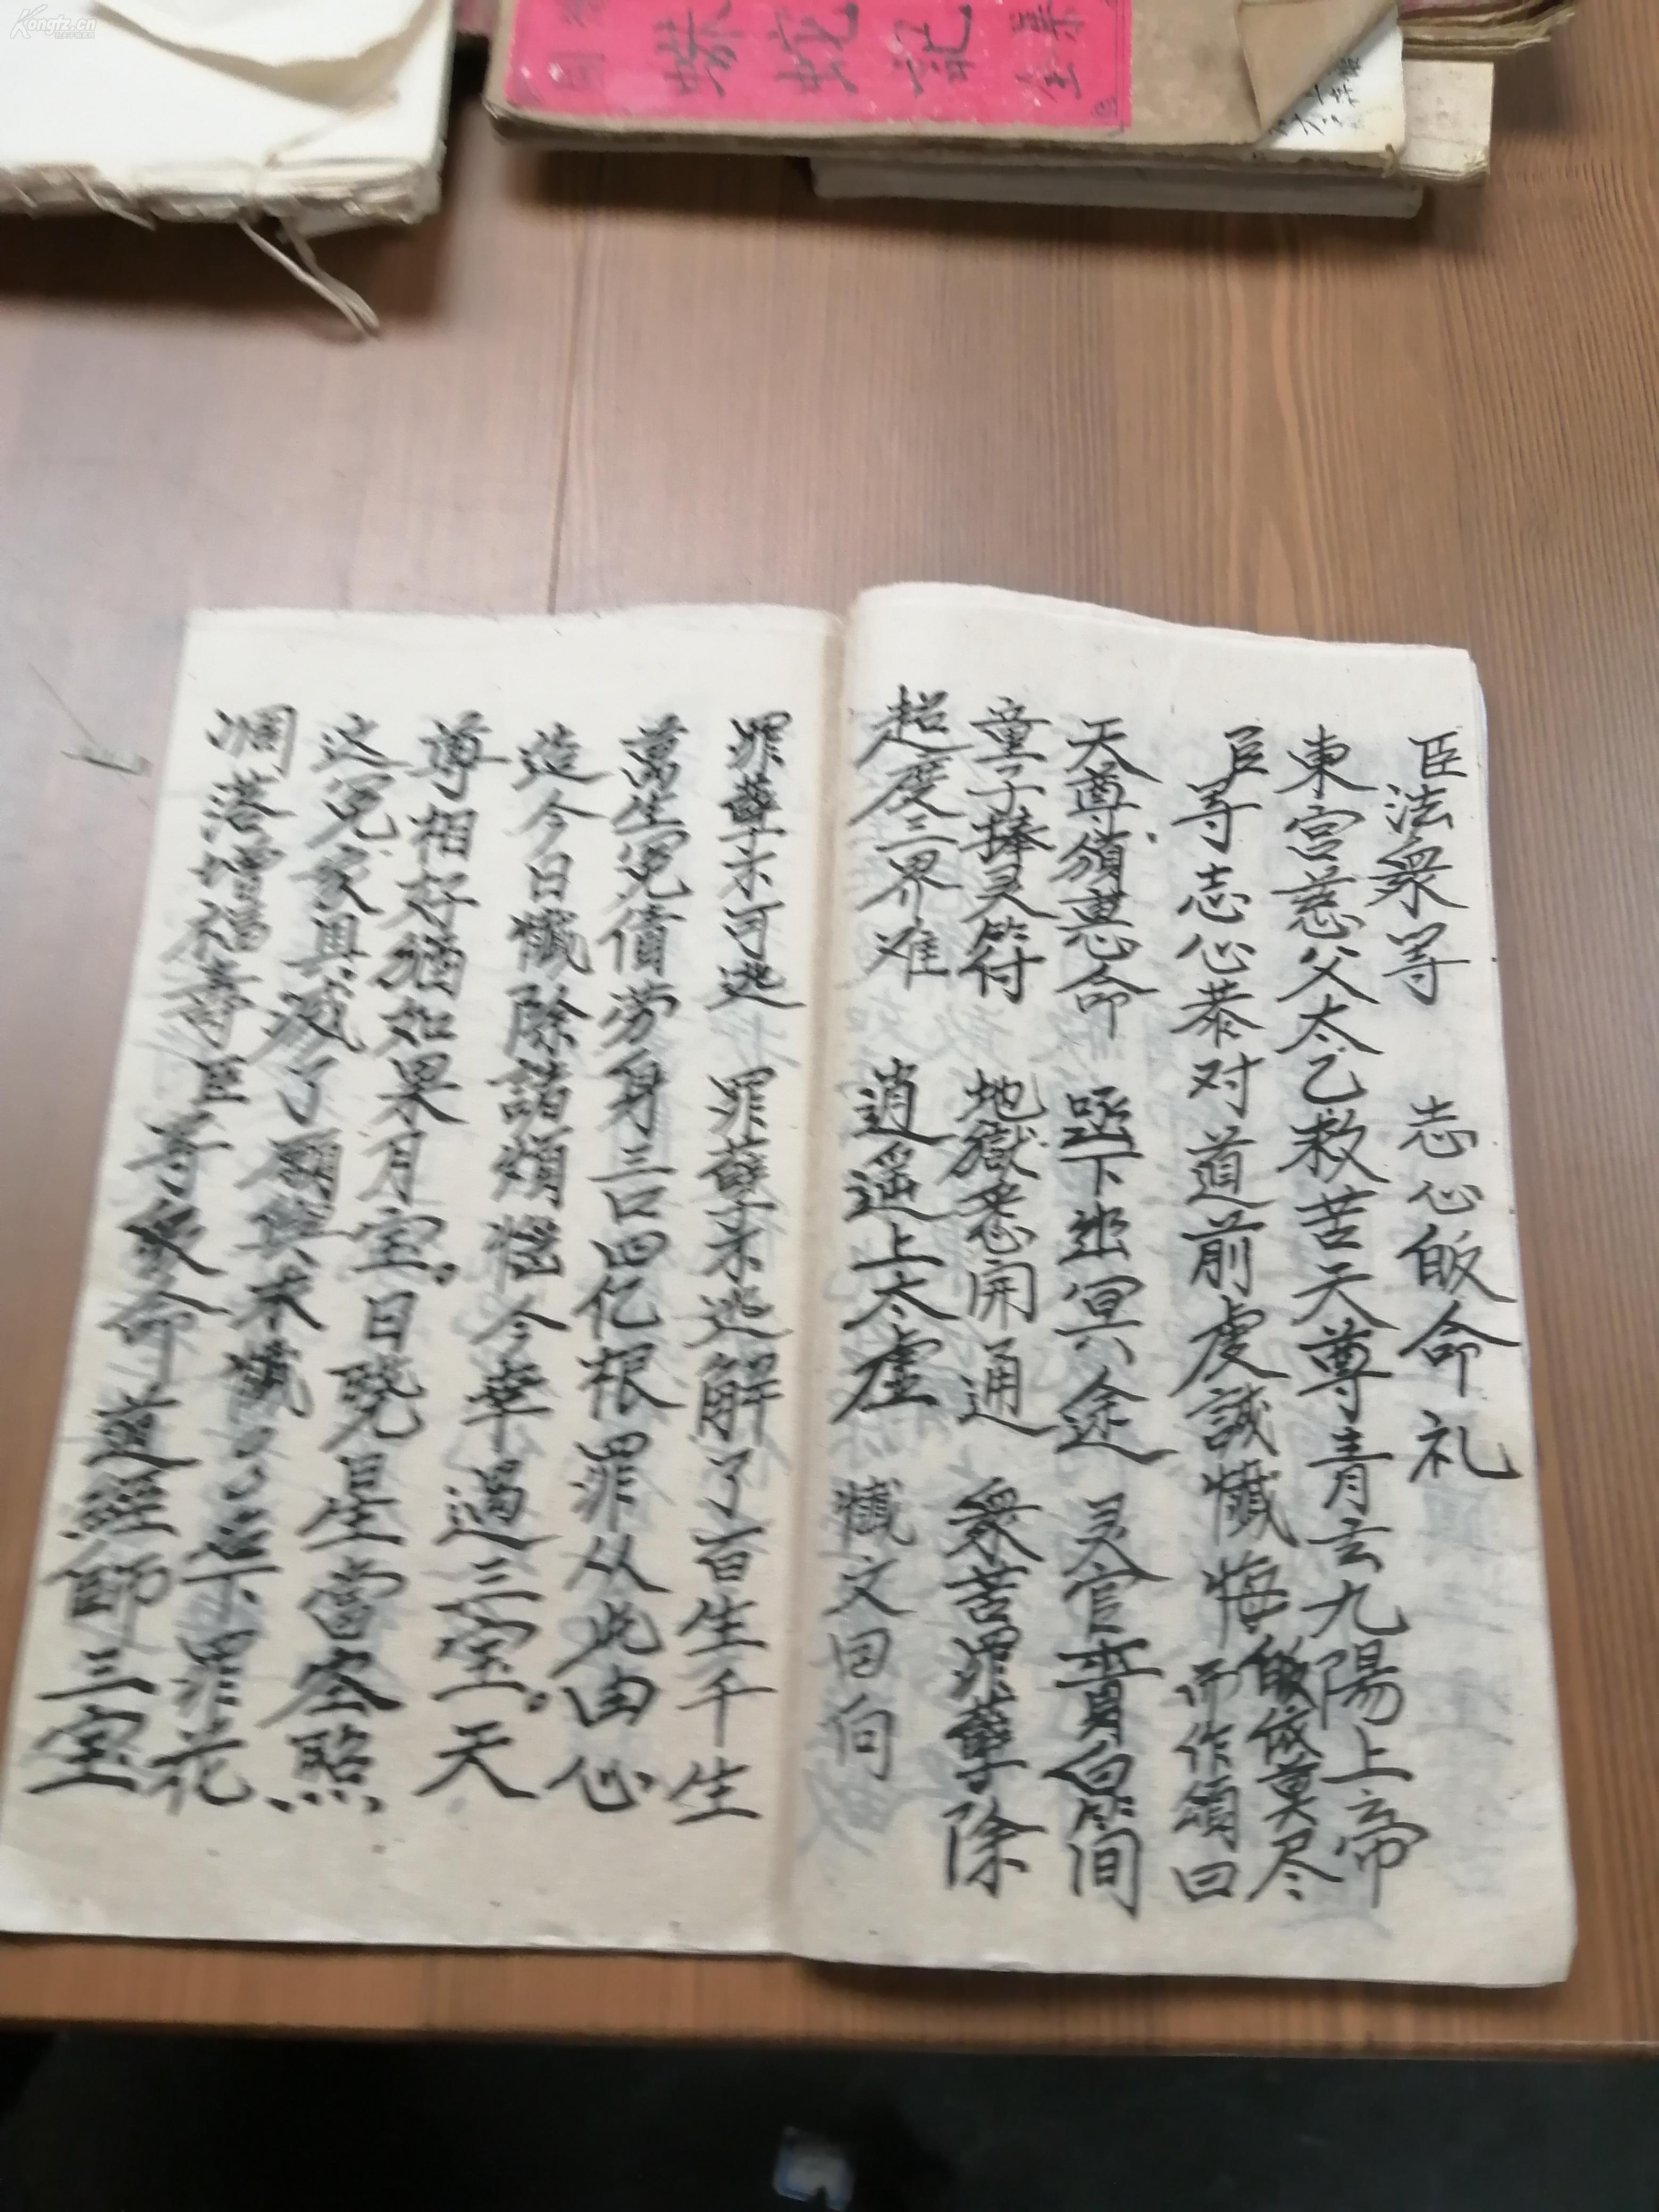 Kongfz.cn
記
臣法衆等　志心皈命礼
東宮慈父太乙救苦天尊青玄九陽上帝
皈依莫尽
臣等志心恭对道前虔誠懺悔而作頌曰
天尊頒惠命　逕下幽冥途　灵官賫白简
童子捧灵符　地獄悉開通　衆苦罪孽除
超度三界难　逍遥上太虚　懺文回向
罪孽未可逃　罪孽未逃解了百生千生
萬生冤債劳身三口四亿根罪从此由心
造今日懺除諸煩惱今幸遇三宝。天
尊相好猶如果月宝。日晓星當空照
这冤家具减了願與未懺了无罪花
凋落增福壽臣等皈命道經師三宝